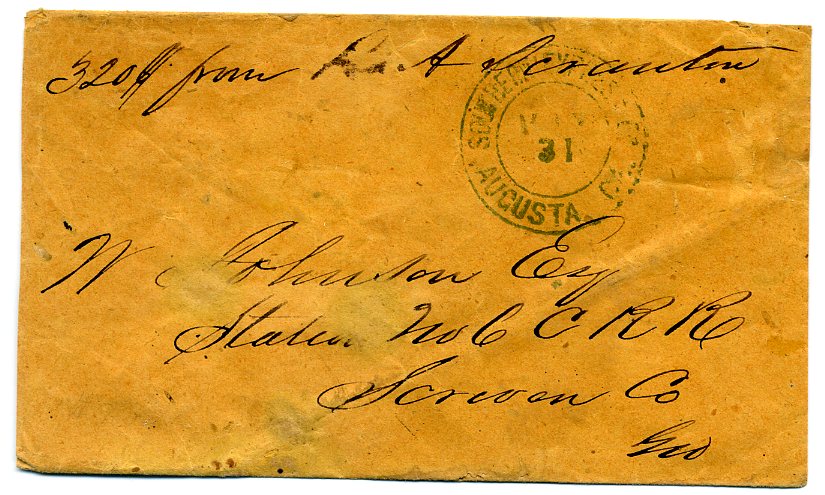 320 $ from A Scranton
SOUTHERN EXPRESS
31
AUGUSTA, GA.
W Johnson Esq
Station No 6 C R R
Screven Co
Geo